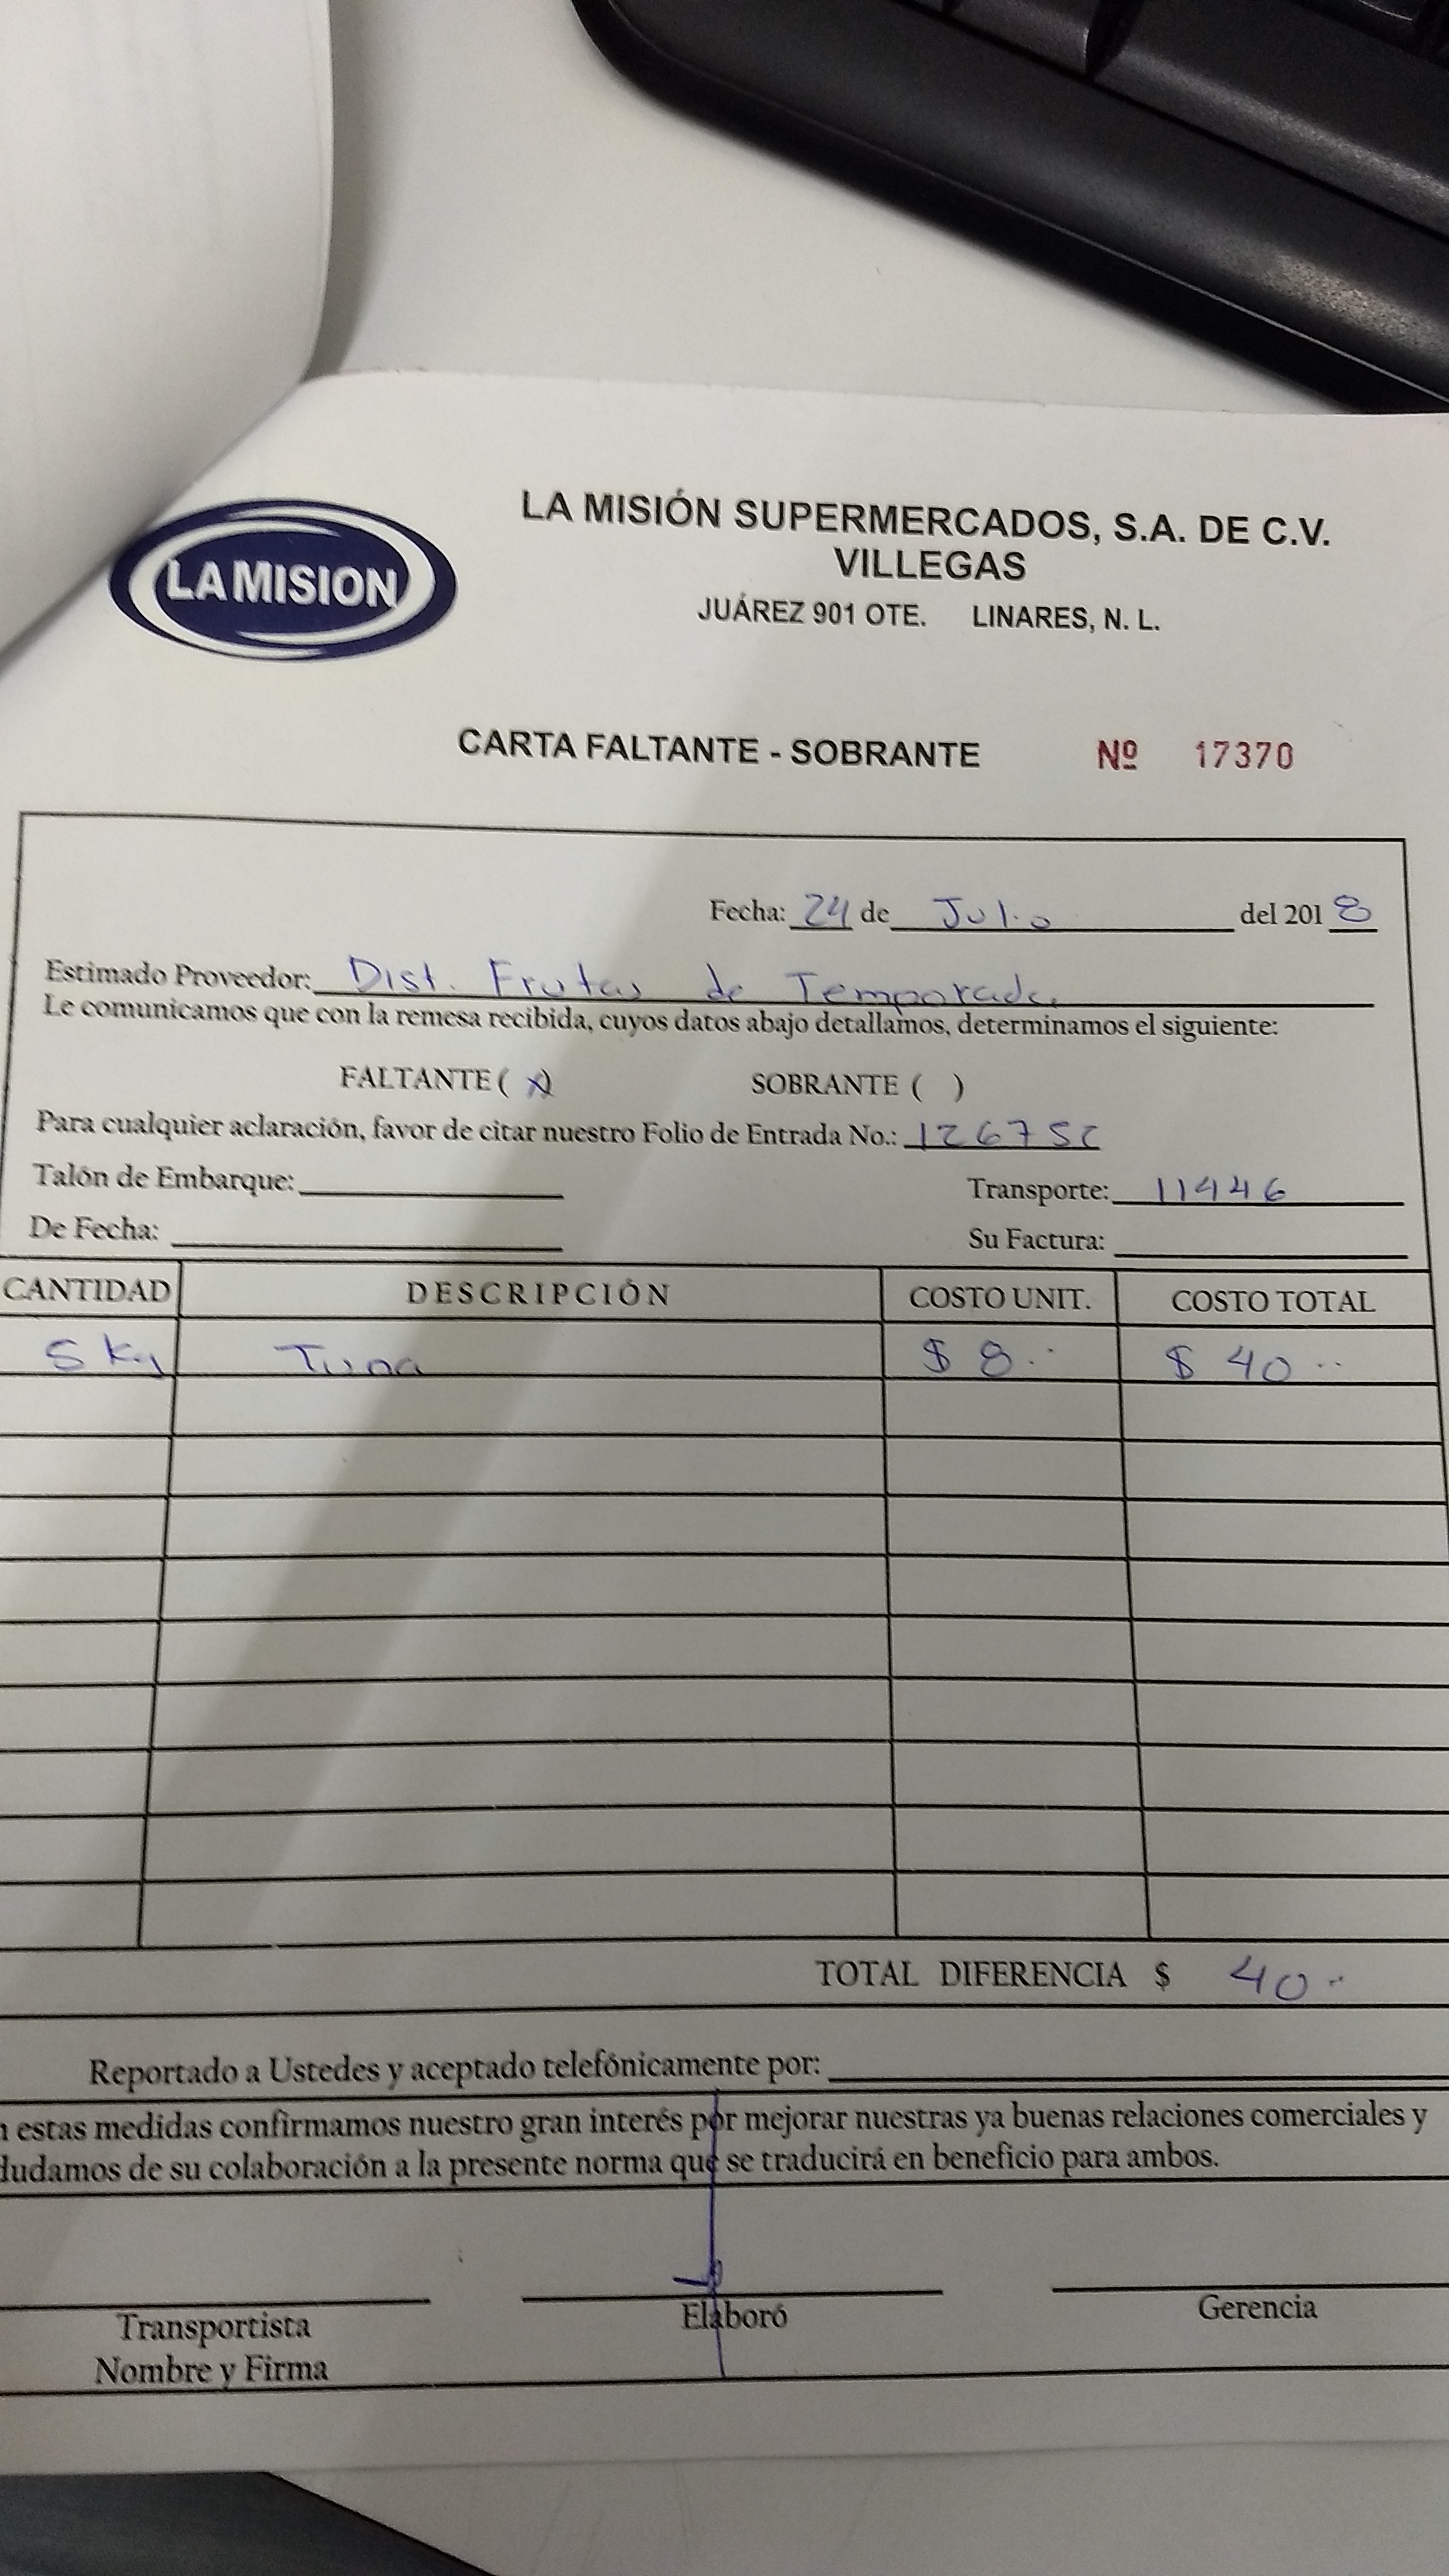 LA MISION
LA MISIÓN SUPERMERCADOS, S.A. DE C.V.
VILLEGAS
JUÁREZ 901 OTE. LINARES, N. L.
CARTA FALTANTE - SOBRANTE Nº 17370
Fecha: 24 de Julio del 2018
Estimado Proveedor: Dist. Frutas de Temporada
Le comunicamos que con la remesa recibida, cuyos datos abajo detallamos, determinamos el siguiente:
FALTANTE (x) SOBRANTE ( )
Para cualquier aclaración, favor de citar nuestro Folio de Entrada No.: 126752
Talón de Embarque: Transporte: 11446
De Fecha: Su Factura:
CANTIDAD DESCRIPCIÓN COSTO UNIT. COSTO TOTAL
5 Kg Tuna $ 8.. $ 40..
TOTAL DIFERENCIA $ 40..
Reportado a Ustedes y aceptado telefónicamente por:
estas medidas confirmamos nuestro gran interés por mejorar nuestras ya buenas relaciones comerciales y
dudamos de su colaboración a la presente norma que se traducirá en beneficio para ambos.
Transportista Elaboró Gerencia
Nombre y Firma